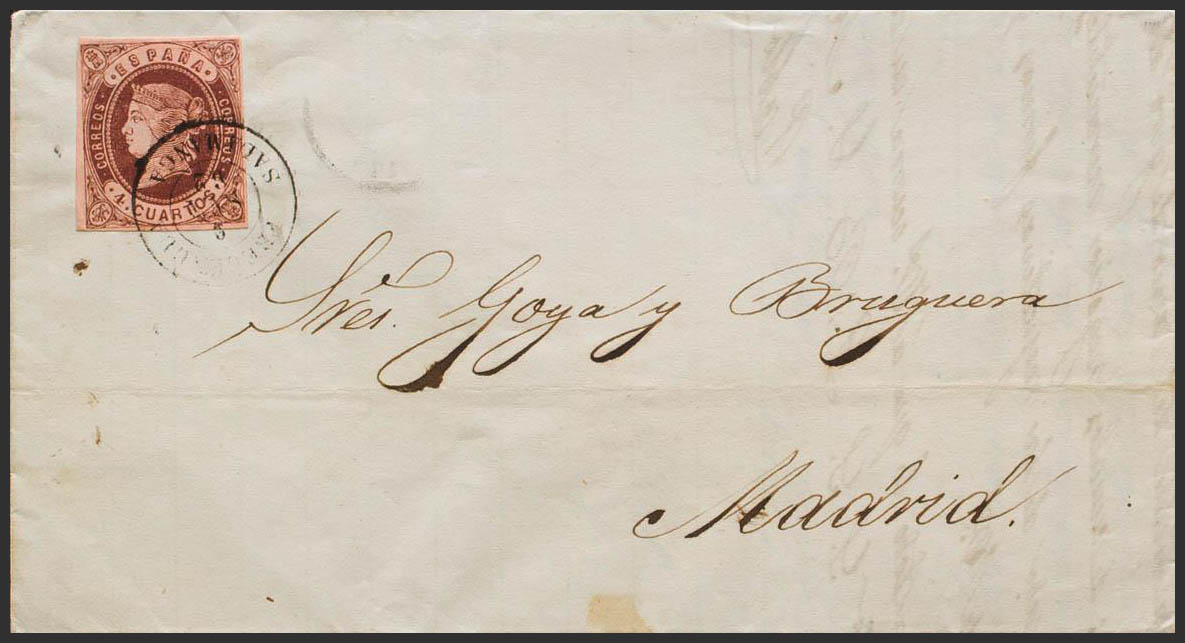 ESPAÑA
CORREOS CORREOS
4 CUARTOS.
SALAMANCA
Sres. Goya y Bruguera
Madrid.